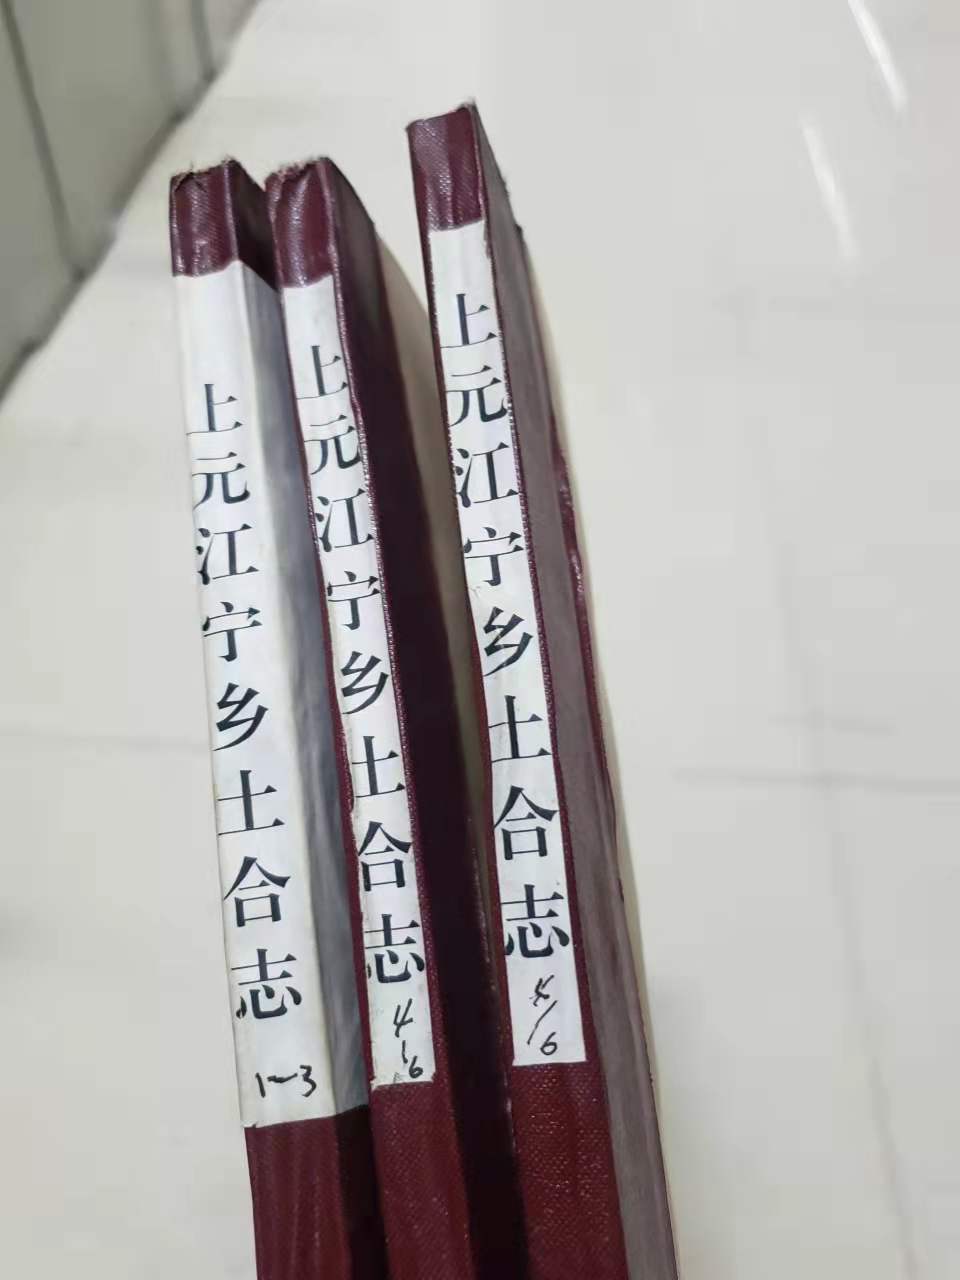 上元江宁乡土合志
1~3
上元江宁乡土合志
4
1
6
上元江宁乡土合志
4/6